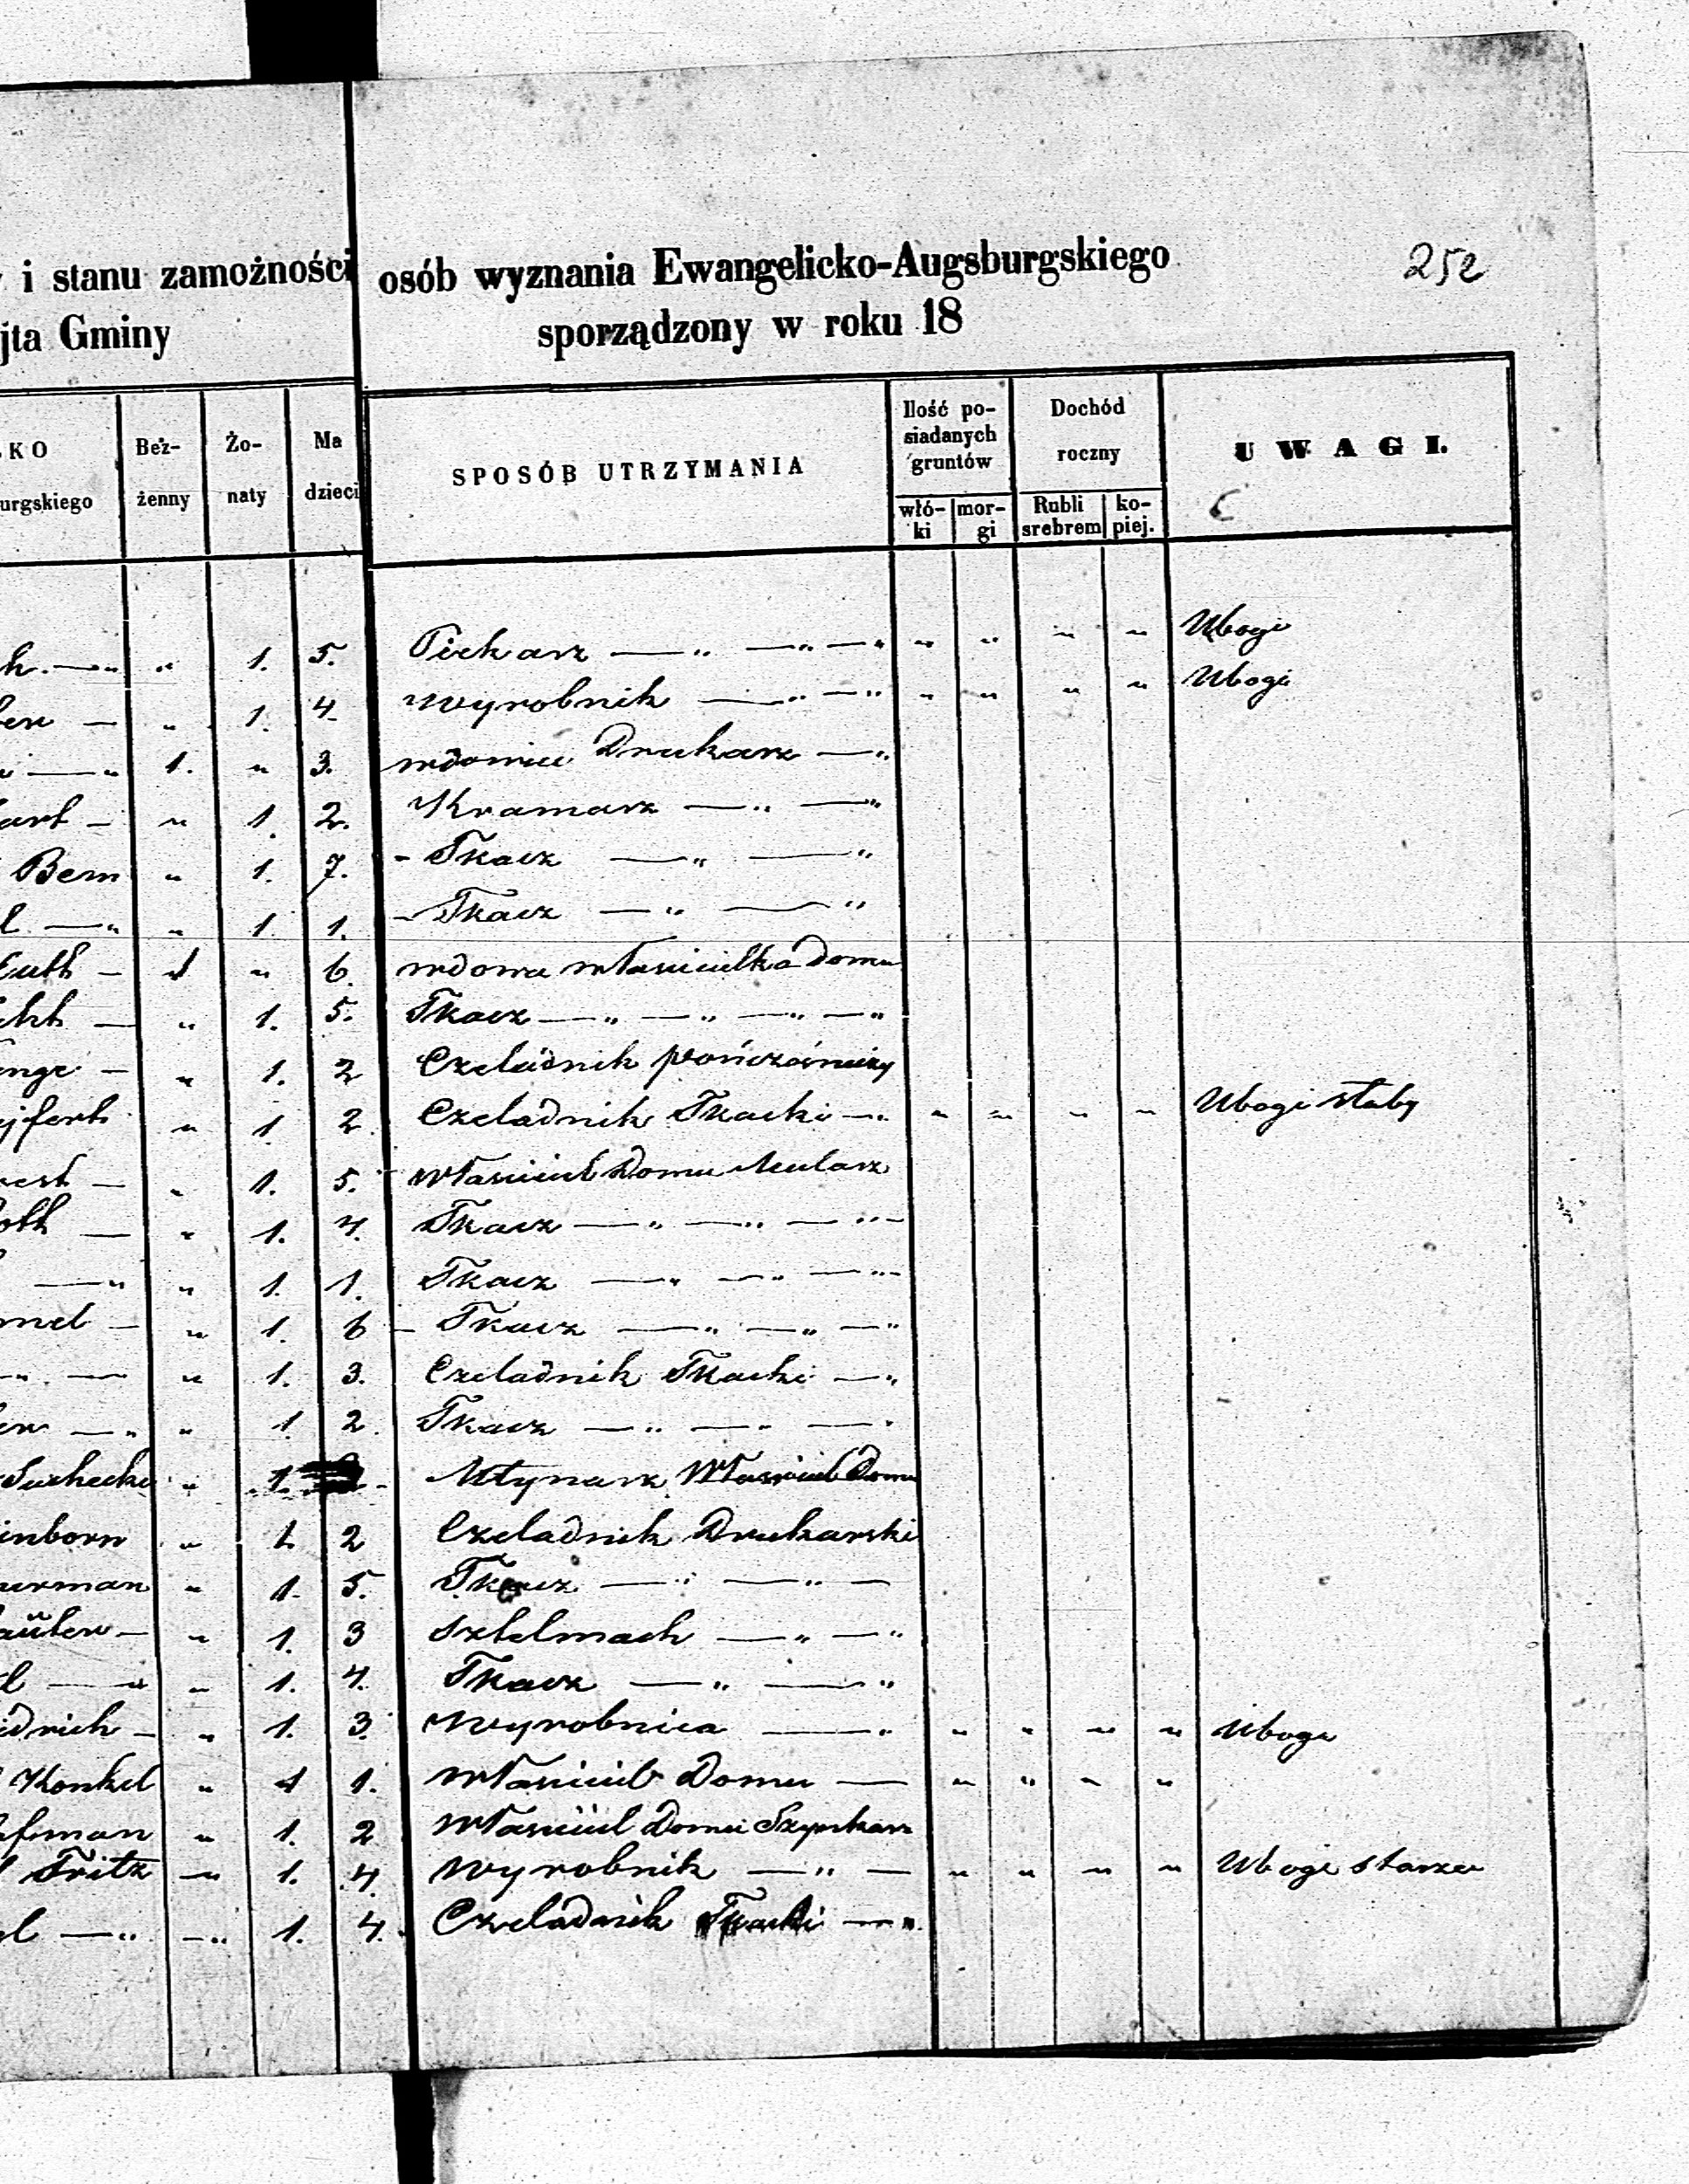 i stanu zamożności osób wyznania Ewangelicko-Augsburgskiego 252
jta Gminy sporządzony w roku 18
KO Bez-żenny Żo-naty Ma dzieci SPOSÓB UTRZYMANIA Ilość po-siadanych gruntów Dochód roczny UWAGI.
urgskiego włó-ki mor-gi Rubli srebrem ko-piej.
k. — „ „ 1. 5. Piekarz — „ — „ — „ „ „ „ „ Ubogi
ber — „ 1. 4. wyrobnik — „ — „ „ „ „ „ Ubogi
— „ 1. „ 3. wdowiec Drukarz — „
art — „ 1. 2. Kramarz — „ — „
Bem „ 1. 7. - Tkacz — „ — „
l — „ „ 1. 1. - Tkacz — „ — „
1 „ 6. wdowa własicielka Domu
— „ 1. 5. Tkacz — „ — „ — „ — „
enge — „ 1. 2 Czeladnik pończoszniczy
ejfert „ 1. 2 Czeladnik Tkacki — „ „ „ „ „ Ubogi słaby
est — „ 1. 5. własiciel Domu Mularz
oth — „ 1. 4. Tkacz — „ — „ — „ —
— „ „ 1. 1. Tkacz — „ — „ — „ —
mel — „ 1. 6 — Tkacz — „ — „ — „
„ — „ 1. 3. Czeladnik Tkacki — „
er — „ „ 1. 2. Tkacz — „ — „ — „
Suchecki „ 1. - Młynarz Własciciel Domu
inborn „ 1. 2 Czeladnik Drukarski
urman „ 1. 5. Tkacz — „ — „ —
aüter — „ 1. 3 Sztelmach — „ — „
l — „ „ 1. 4. Tkacz — „ — „
idrich — „ 1. 3. wyrobnica — „ „ „ „ „ Uboga
Konkel „ 1 1. własiciel Domu — „ „ „ „
ofman „ 1. 2 własiciel Domu Szynkarz
Fritz — „ 1. 4. wyrobnik — „ — „ „ „ „ Ubogi starzec
l — „ — „ 1. 4. Czeladnik Tkacki — „